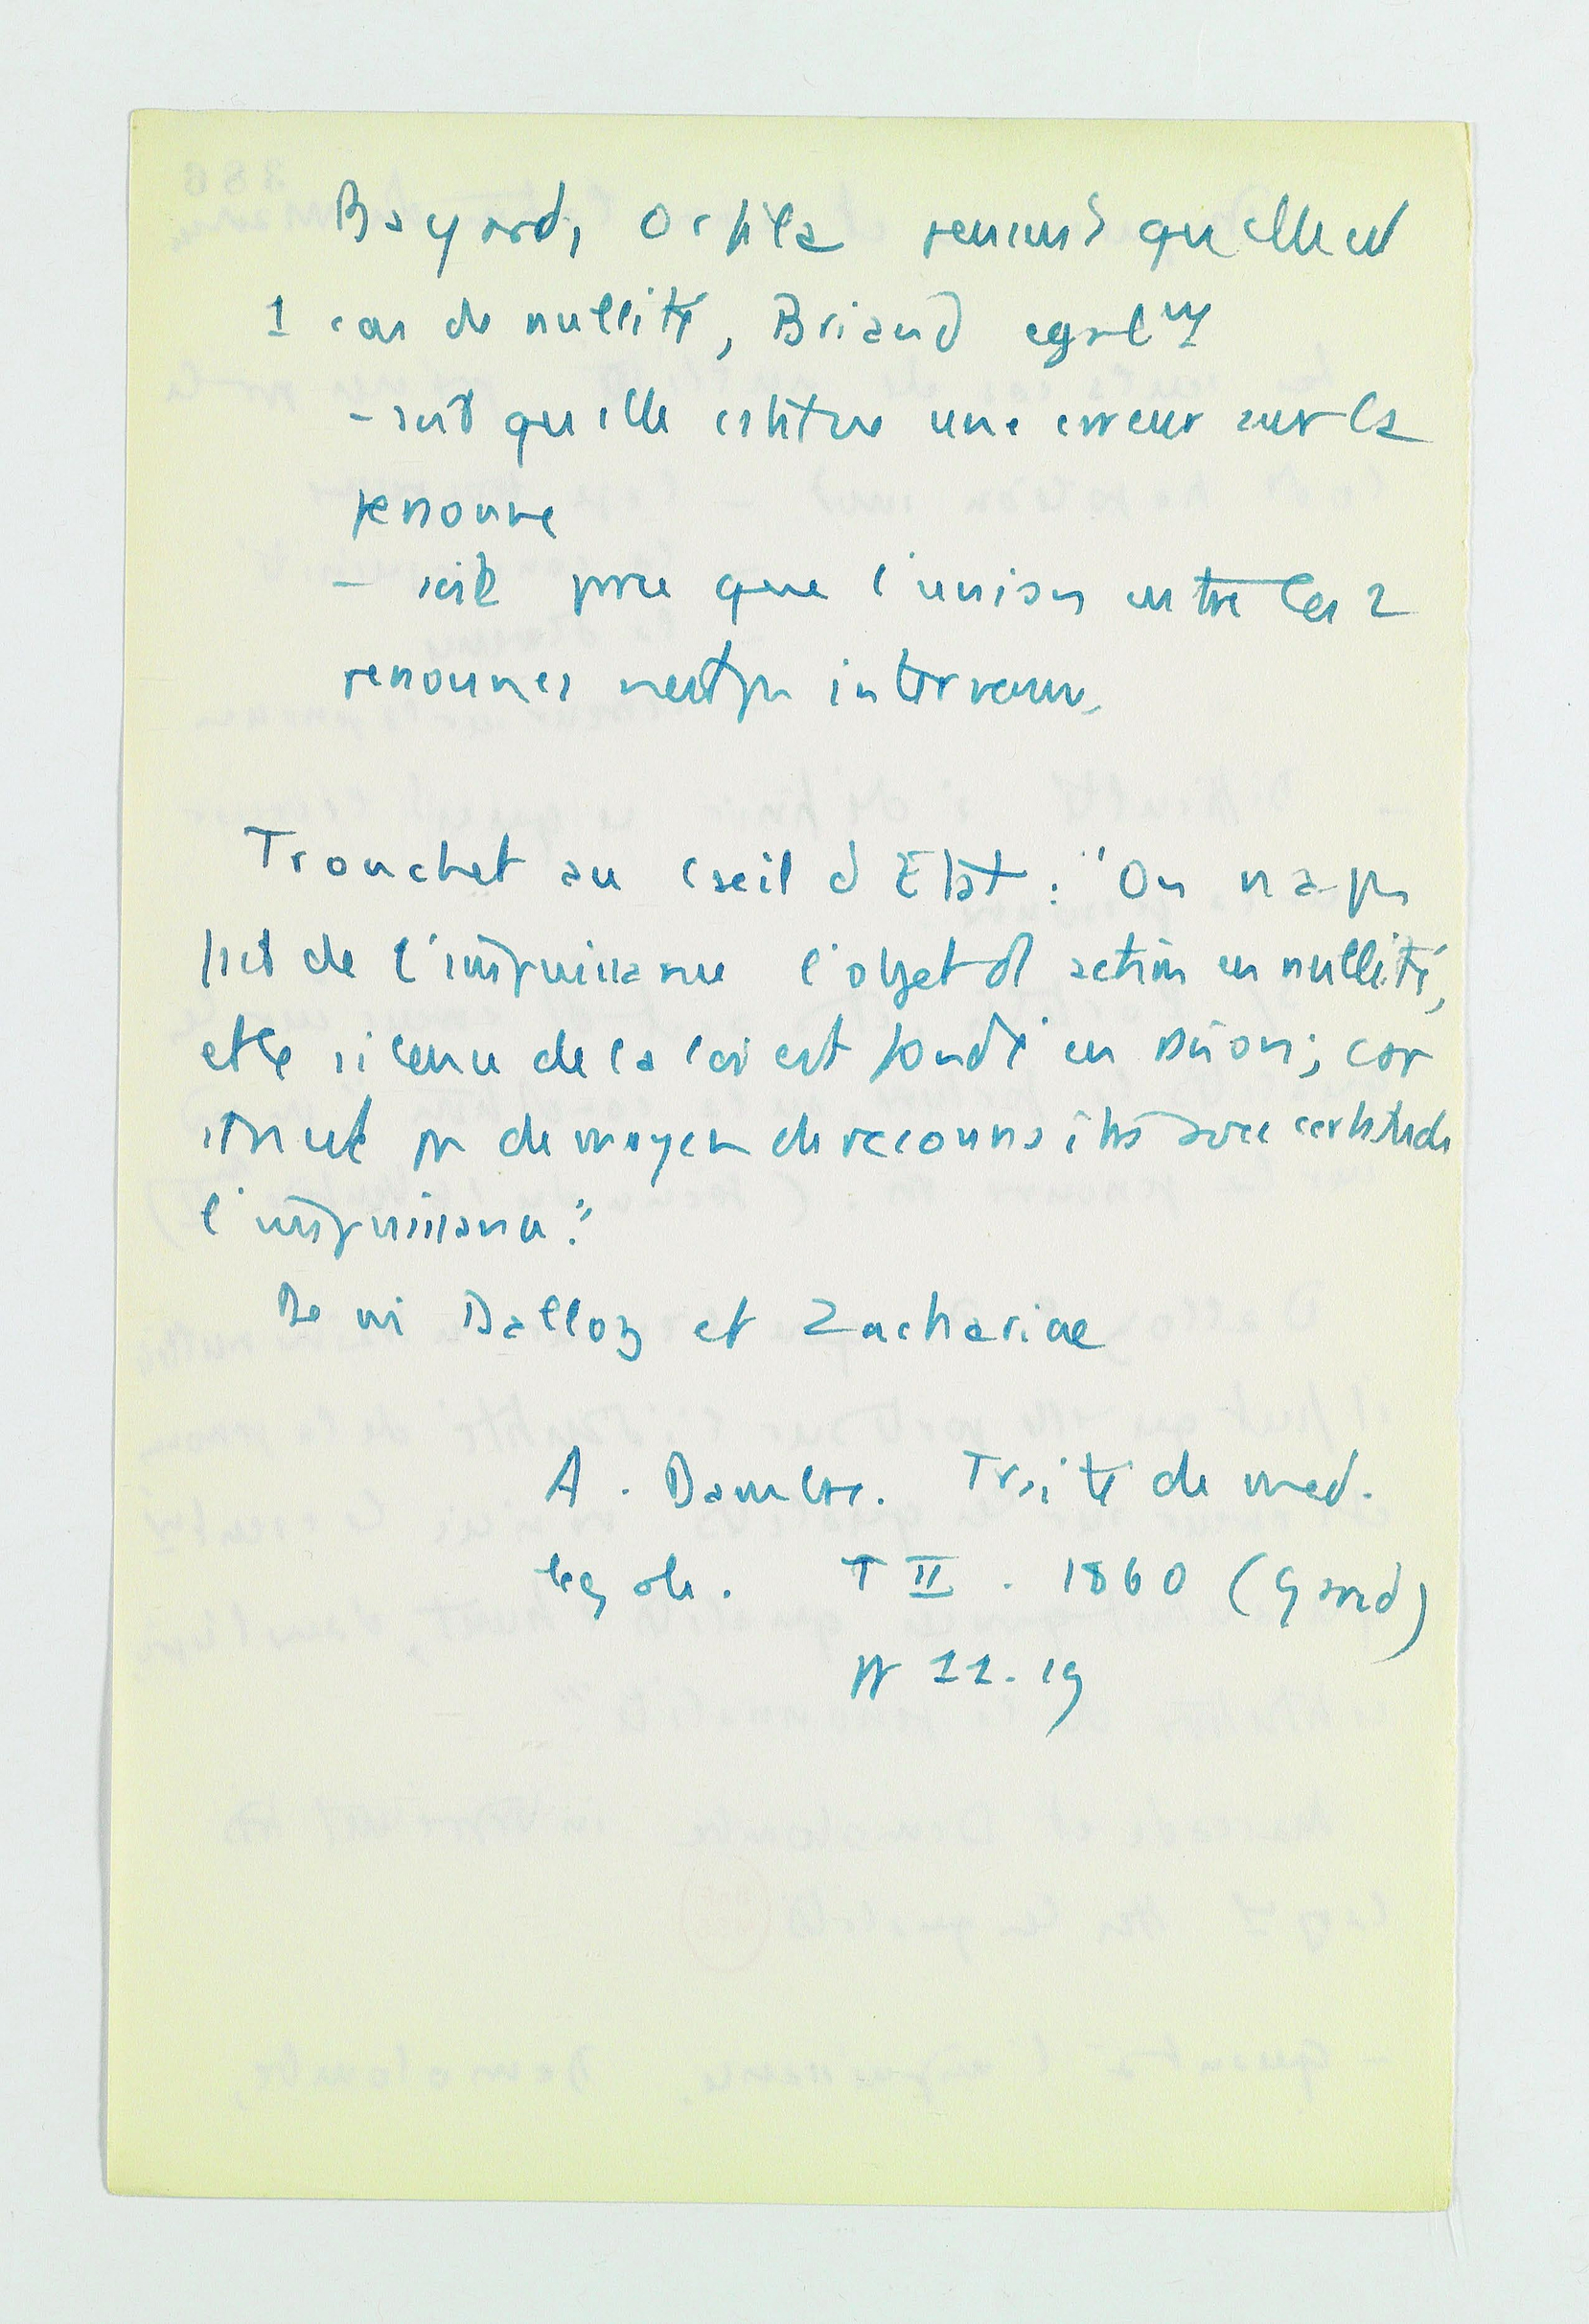 Bayard, Orfila pensent qu'elle est
1 cas de nullité, Briand egalmt
- soit qu'elle constitue une erreur sur la
personne
- soit parce que l'union entre les 2
personnes n'est pas intervenue.
Tronchet au Cseil d'Etat : "On n'a pas
fait de l'impuissance l'objet d'1 action en nullité,
et le silence de la loi est fondé en raison ; car
il n'est pas de moyen de reconnaître avec certitude
l'impuissance."
De m Dalloz et Zachariae
A. Dambre. Traité de med.
legale. T II . 1860 (Gand)